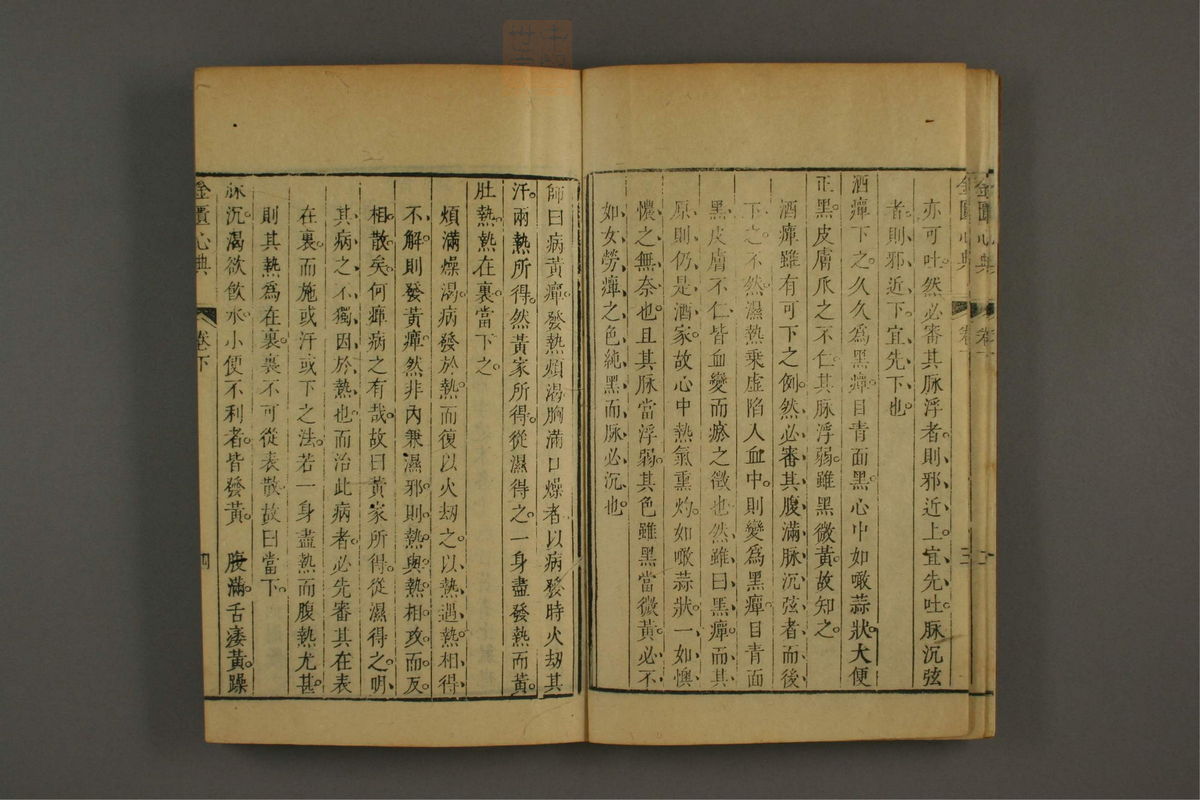 金匱心典 卷下 三
亦可吐。然必審其脉浮者。則邪近上。宜先吐。脉沉弦
者。則邪近下。宜先下也。
酒癉下之。久久爲黑癉。目靑面黑。心中如噉蒜狀。大便
正黑。皮膚爪之不仁。其脉浮弱。雖黑微黃。故知之。
酒癉雖有可下之例。然必審其腹滿脉沉弦者。而後
下之。不然。濕熱乘虛陷入血中。則變爲黑癉。目靑面
黑。皮膚不仁。皆血變而瘀之徵也。然雖曰黑癉。而其
原則仍是酒家。故心中熱氣熏灼。如噉蒜狀。一如懊
憹之無奈也。且其脉當浮弱。其色雖黑當微黃。必不
如女勞癉之色純黑而脉必沉也。
師曰。病黃癉。發熱煩渴。胸滿口燥者。以病發時火劫其
汗。兩熱所得。然黃家所得。從濕得之。一身盡發熱而黃。
肚熱。熱在裏。當下之。
煩滿燥渴。病發於熱。而復以火劫之。以熱遇熱。相得
不解。則發黃癉。然非內兼濕邪。則熱與熱相攻。而反
相散矣。何癉病之有哉。故曰黃家所得。從濕得之。明
其病之不獨因於熱也。而治此病者。必先審其在表
在裏。而施或汗或下之法。若一身盡熱而腹熱尤甚。
則其熱爲在裏。裏不可從表散。故曰當下。
脉沉。渴欲飮水。小便不利者。皆發黃。 腹滿。舌痿黃。躁
金匱心典 卷下 四